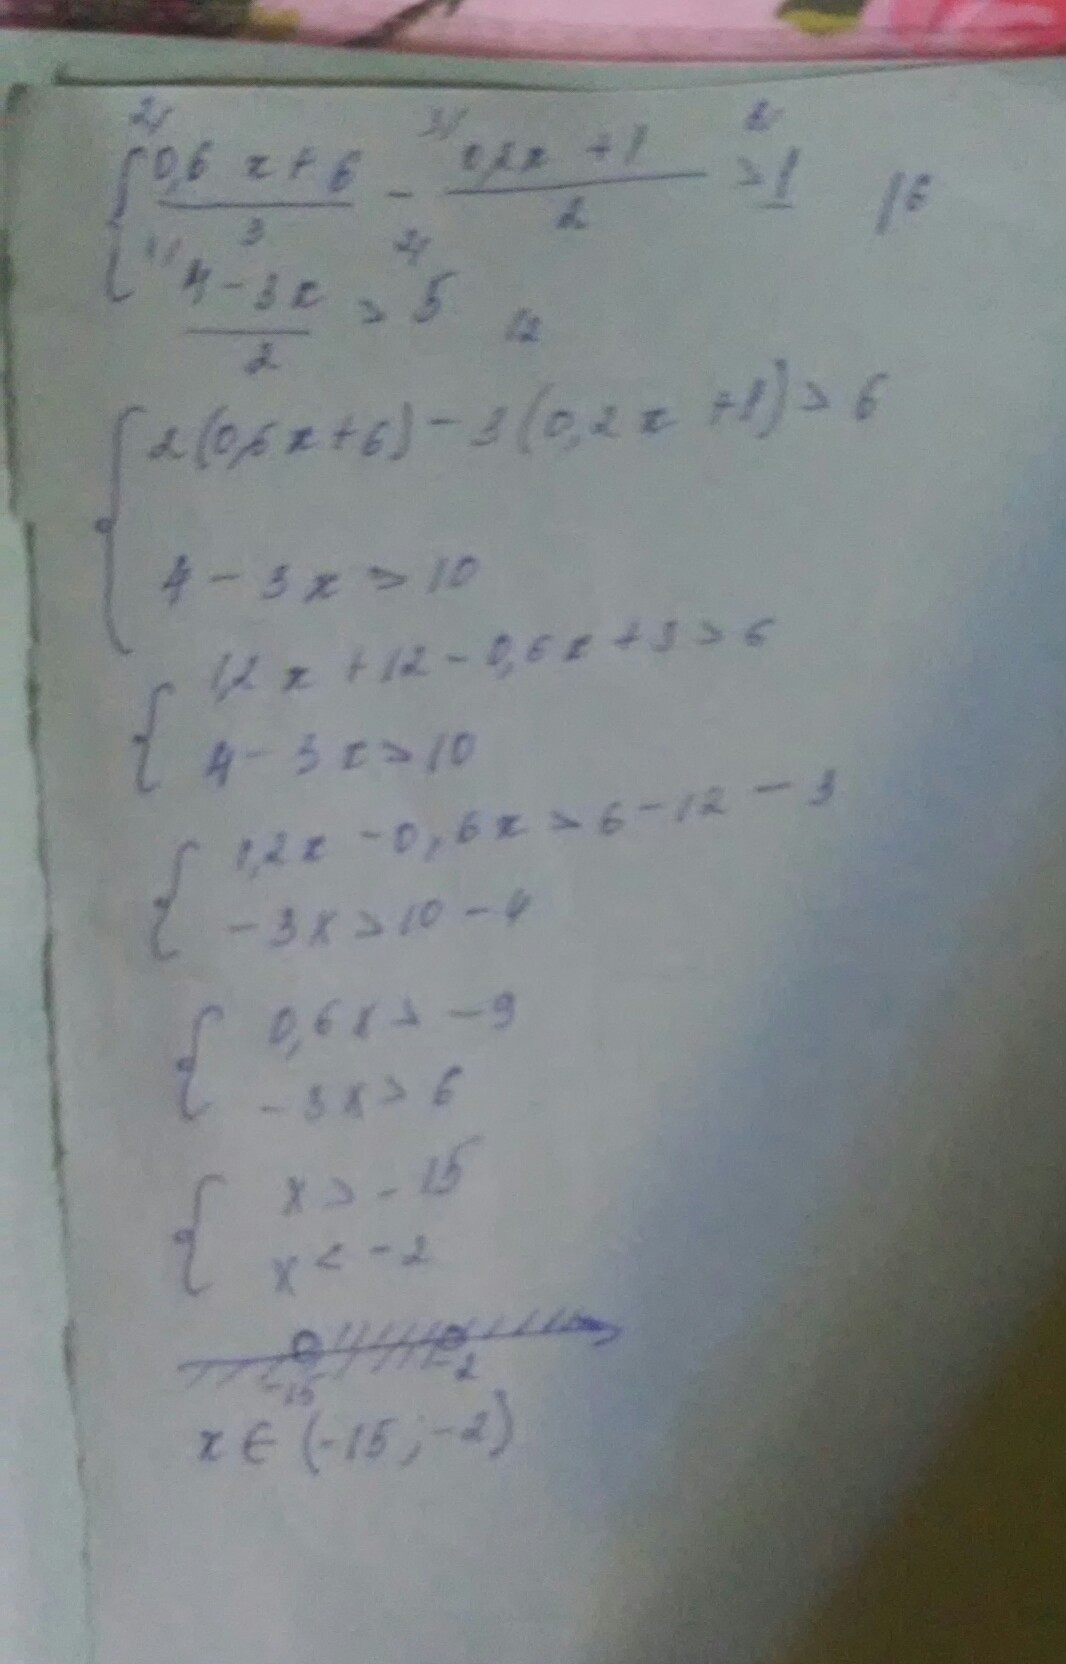 2/ 3/ 2/
{ (0,6x+6)/3 - (0,2x+1)/2 > 1 | 6
1/ 2/
(4-3x)/2 > 5 | 2
{ 2(0,6x+6) - 3(0,2x+1) > 6
4 - 3x > 10
{ 1,2x + 12 - 0,6x + 3 > 6
4 - 3x > 10
{ 1,2x - 0,6x > 6 - 12 - 3
- 3x > 10 - 4
{ 0,6x > - 9
- 3x > 6
{ x > - 15
x < - 2
-15 -2
x ∈ (-15; -2)